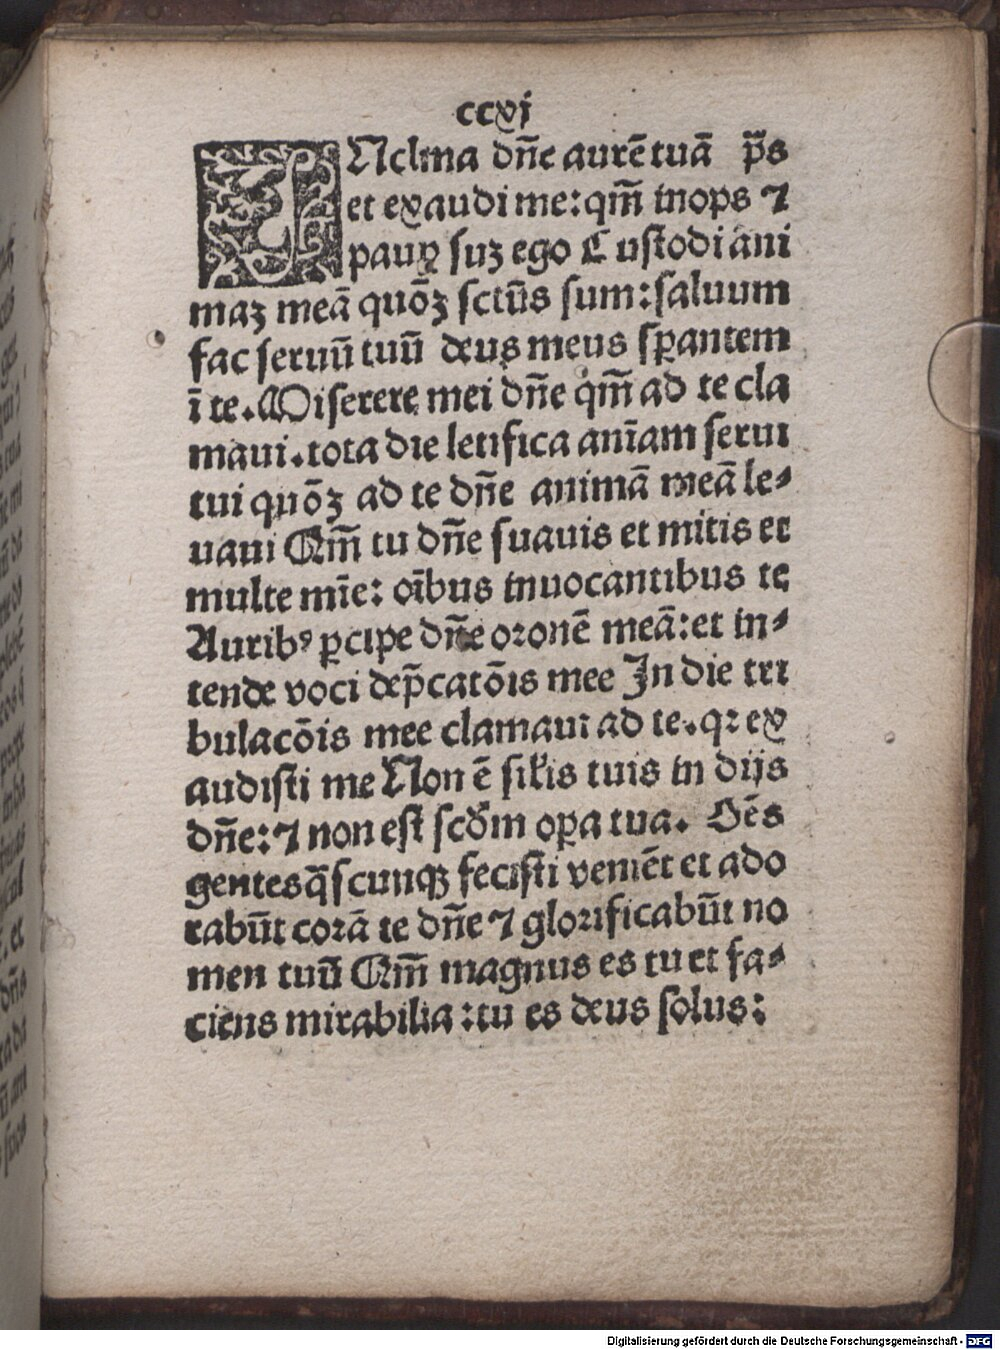 ccxj
INclina dn̄e aurē tuā p̄s
et exaudi me: qm̄ inops ⁊
paup̲ suꝫ ego Custodi ani
maꝫ meā quōꝫ sctūs sum: saluum
fac seruū tuū deus meus sꝑantem
ī te. Miserere mei dn̄e qm̄ ad te cla
maui. tota die letifica anīam serui
tui quōꝫ ad te dn̄e animā meā le⸗
uaui Qm̄ tu dn̄e suauis et mitis et
multe mīe: oībus inuocantibus te
Auribꝰ ꝑcipe dn̄e oꝛonē meā: et in⸗
tende voci dep̄catōis mee In die tri
bulacōis mee clamaui ad te. qꝛ ex
audisti me Non ē sil̄is tuis in dijs
dn̄e: ⁊ non est scd̄m oꝑa tua. Oēs
gentes q̄scunqꝫ fecisti veniēt et ado
rabūt coꝛā te dn̄e ⁊ gloꝛificabūt no
men tuū Qm̄ magnus es tu et fa⸗
ciens mirabilia: tu es deus solus:
Digitalisierung gefördert durch die Deutsche Forschungsgemeinschaft - DFG